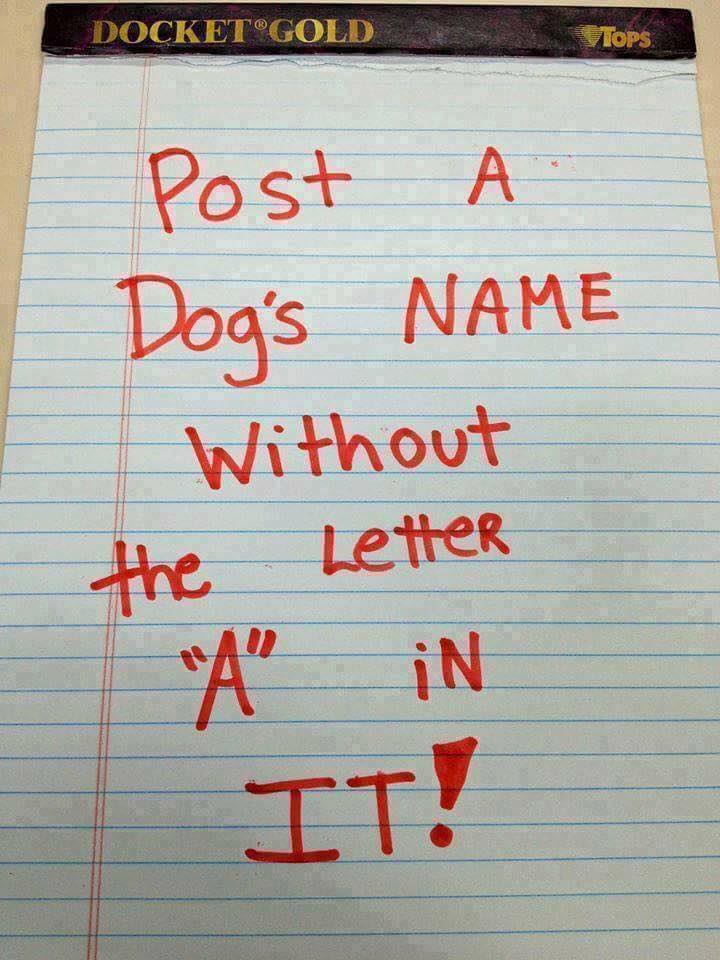 DOCKET®GOLD TOPS
Post A
Dog's NAME
Without
the LetteR
"A" iN
IT!